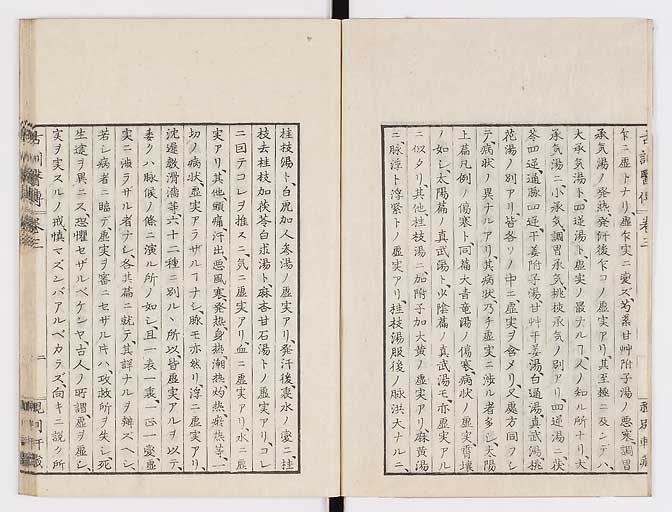 古訓醫傳 卷三
乍ニ虛トナリ、虛乍実ニ変ズ、芍薬甘艸附子湯ノ悪寒、調胃
承気湯ノ発熱、発汗後乍ノ虛実アリ、其至極ニ及シデハ、
大承気湯ト四逆湯ト、虛実ノ最ナル丁人ノ知ル所ナリ、大
承気湯ニ、小承気、調胃承気、桃核承気ノ別アリ、四逆湯ニ、茯
苓四逆、通脉四逆、干姜附子湯、甘艸干姜湯、白通湯、真武湯、桃
花湯ノ別アリ、皆各ソノ中ニ虛実ヲ含メリ、又處方同フシ
テ、病状ノ異ナルアリ、其病状乃チ虛実ニ渉ル者多シ、太陽
上篇凡例ノ傷寒ト、同篇大青竜湯ノ傷寒、病状ノ虛実霄壤
ノ如シ、太陽篇ノ真武湯ト、少陰篇ノ真武湯モ、亦虛実アル
ニ似タリ、其他桂枝湯ニ、加附子加大黄ノ虛実アリ、麻黄湯
ニ、脉浮ト浮緊トノ虛実アリ、桂枝湯服後ノ脉洪大ナルニ、
桂枝湯ト、白虎加人参湯ノ虛実アリ、発汗後、裏水ノ変ニ、桂
枝去桂枝加茯苓白朮湯ト、麻杏甘石湯トノ虛実アリ、コレ
ニ囙テコレヲ推スニ、気ニ虛実アリ、血ニ虛実アリ、水ニ虛
実アリ、其他、頭痛、汗出、悪風、寒、発熱、身熱、潮熱、灼熱、煩熱等、一
切ノ病状、虛実アラザル丁ナシ、脉モ亦然リ、浮ニ虛実アリ、
沈遅数滑濇等、六十二種ニ別ルヽ所以、皆虛実アルヲ以テ、
委クハ脉候ノ條ニ演ル所ノ如シ、且一表一裏、一正一変、虛
実ニ渉ラザル者ナシ、各其篇ニ就テ、其詳ナルヲ辨スヘシ、
若シ病者ニ臨デ、虛実ヲ審ニセザル片ハ、攻救所ヲ失シ、死
生途ヲ異ニス、恐懼セザルベケンヤ、古人ノ所謂虛ヲ虛シ、
実ヲ実スルノ戒、慎マズンバアルベカラズ、尚キニ説ク所